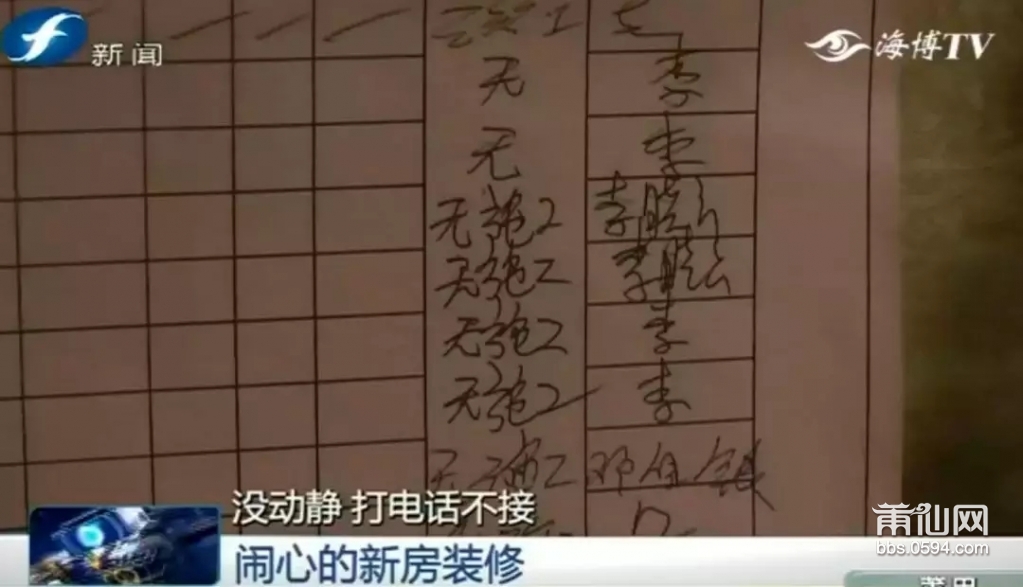 新闻
海博TV
无
李
无
李
无施工
李
无施工
李
无施工
李
无施工
李
无施工
没动静 打电话不接
闹心的新房装修
莆仙网
bbs.0594.com
莆田